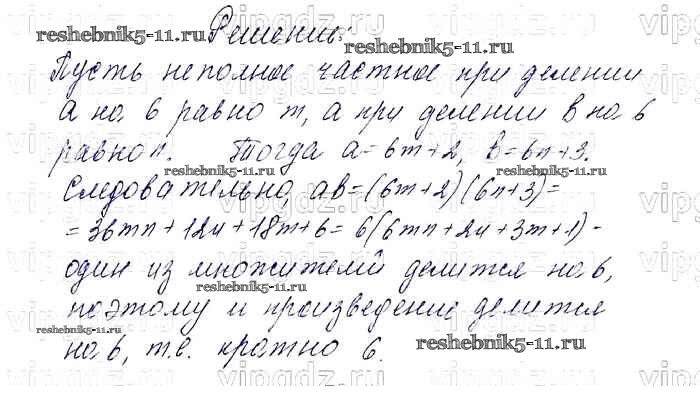 Решение:
Пусть неполное частное при делении
а на 6 равно m, а при делении в на 6
равно n. Тогда а=6m+2, в=6n+3.
Следовательно, ав=(6m+2)(6n+3)=
=36mn+12n+18m+6=6(6mn+2n+3m+1)-
один из множителей делится на 6,
поэтому и произведение делится
на 6, т.е. кратно 6.
reshebnik5-11.ru
reshebnik5-11.ru
reshebnik5-11.ru
reshebnik5-11.ru
reshebnik5-11.ru
reshebnik5-11.ru
vipgdz.ru